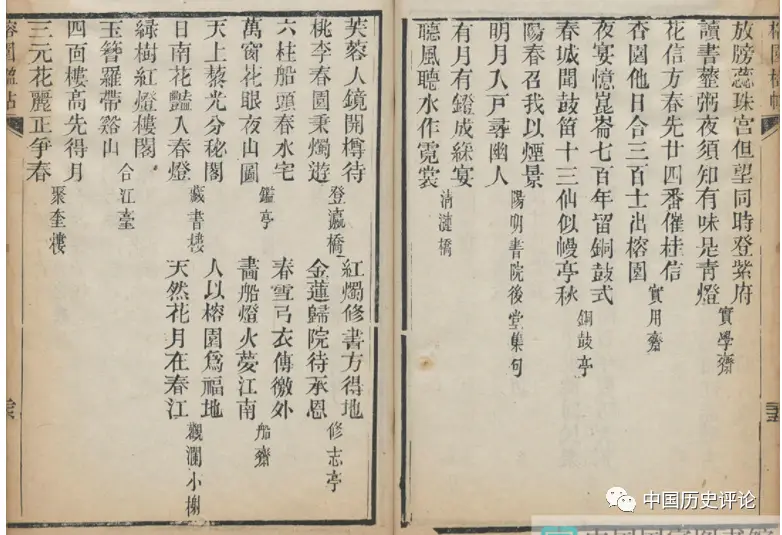 放牓蕊珠宮但望同時登紫府
讀書虀粥夜須知有味是青燈
實學齋
花信方春先廿四番催桂信
杏園他日合三百士出榕園
實用齋
夜宴憶崑崙七百年留銅鼓式
春城聞鼓笛十三仙似幔亭秋
銅鼓亭
陽春召我以煙景
明月入戶尋幽人
陽明書院後堂集句
有月有鐙成綵宴
聽風聽水作霓裳
清漣橋
芙蓉人鏡開樽待
桃李春園秉燭遊
登瀛橋
六柱船頭春水宅
萬窗花眼夜山圖
鑑亭
天上藜光分秘閣
日南花豔入春燈
藏書樓
綠樹紅燈樓閣
玉簪羅帶谿山
合江臺
四面樓高先得月
三元花麗正爭春
聚奎樓
紅燭修書方得地
金蓮歸院待承恩
修志亭
春雪弓衣傳徼外
畵船燈火夢江南
船齋
人以榕園爲福地
天然花月在春江
觀瀾小榭
榕園楹帖
中国历史评论